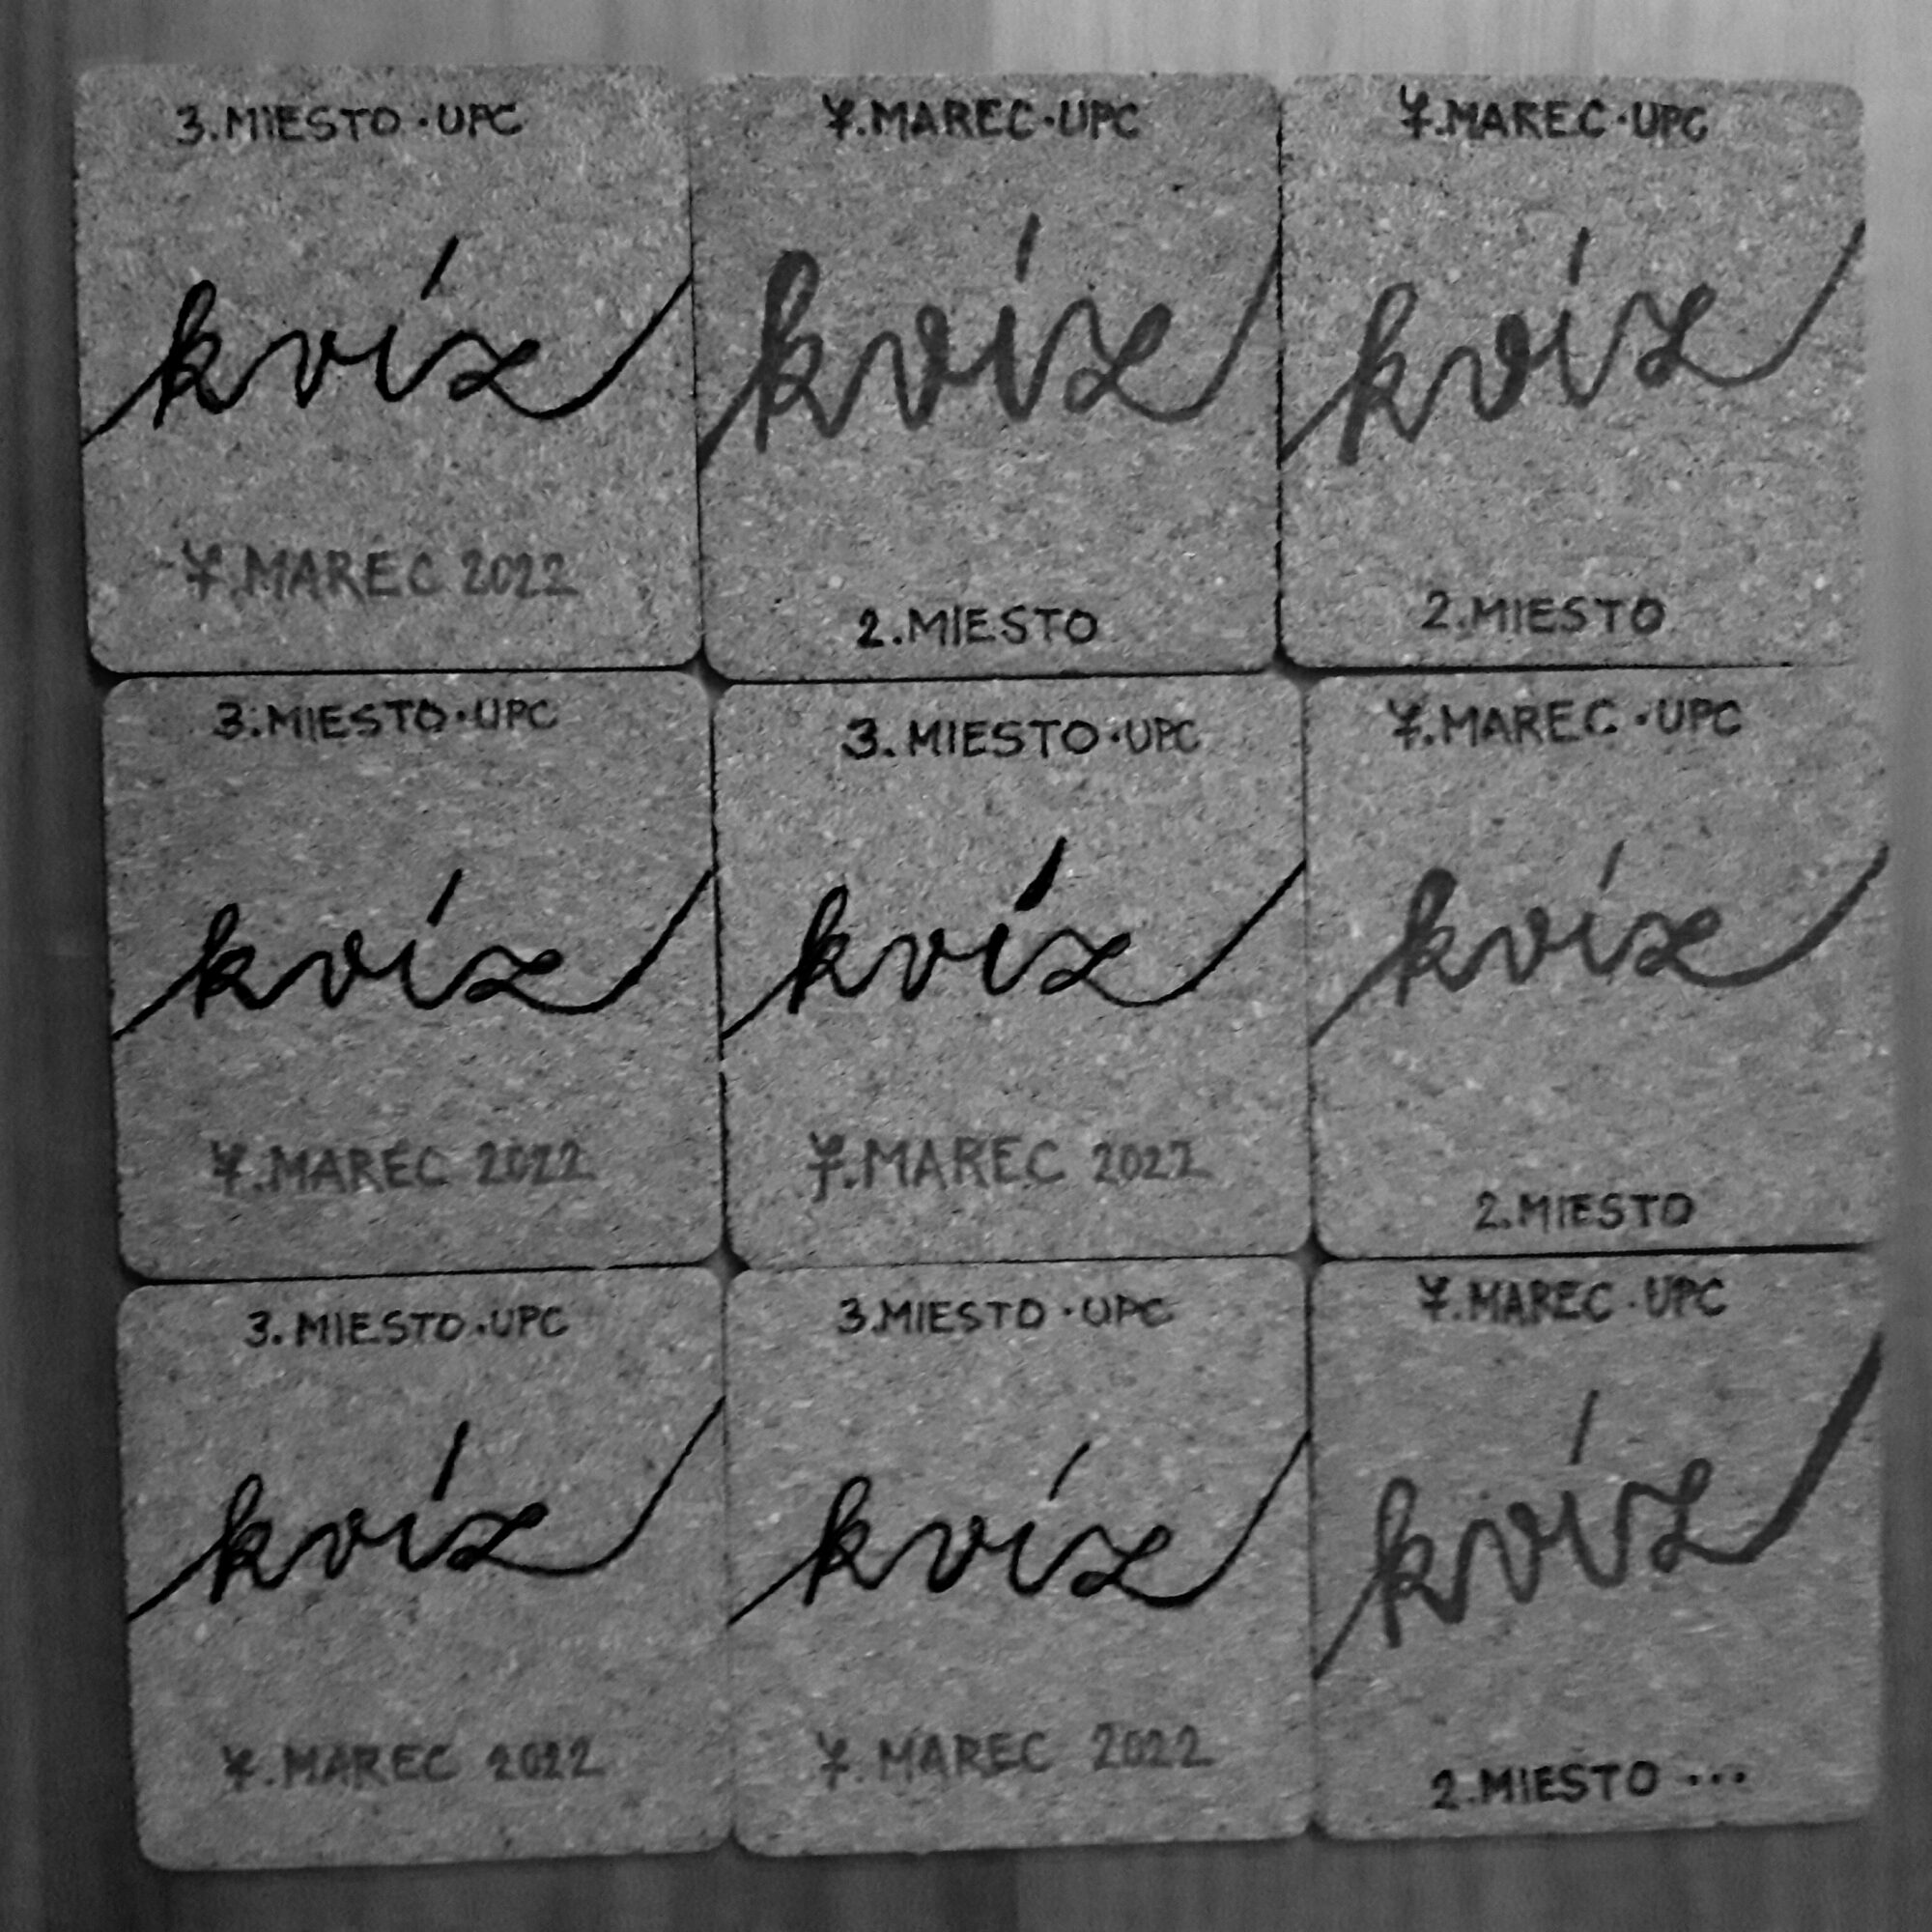 3.MIESTO·UPC
kvíz
7.MAREC 2022
7.MAREC·UPC
kvíz
2.MIESTO
7.MAREC·UPC
kvíz
2.MIESTO
3.MIESTO·UPC
kvíz
7.MAREC 2022
3.MIESTO·UPC
kvíz
7.MAREC 2022
7.MAREC·UPC
kvíz
2.MIESTO
3.MIESTO·UPC
kvíz
7.MAREC 2022
3.MIESTO·UPC
kvíz
7.MAREC 2022
7.MAREC·UPC
kvíz
2.MIESTO ...